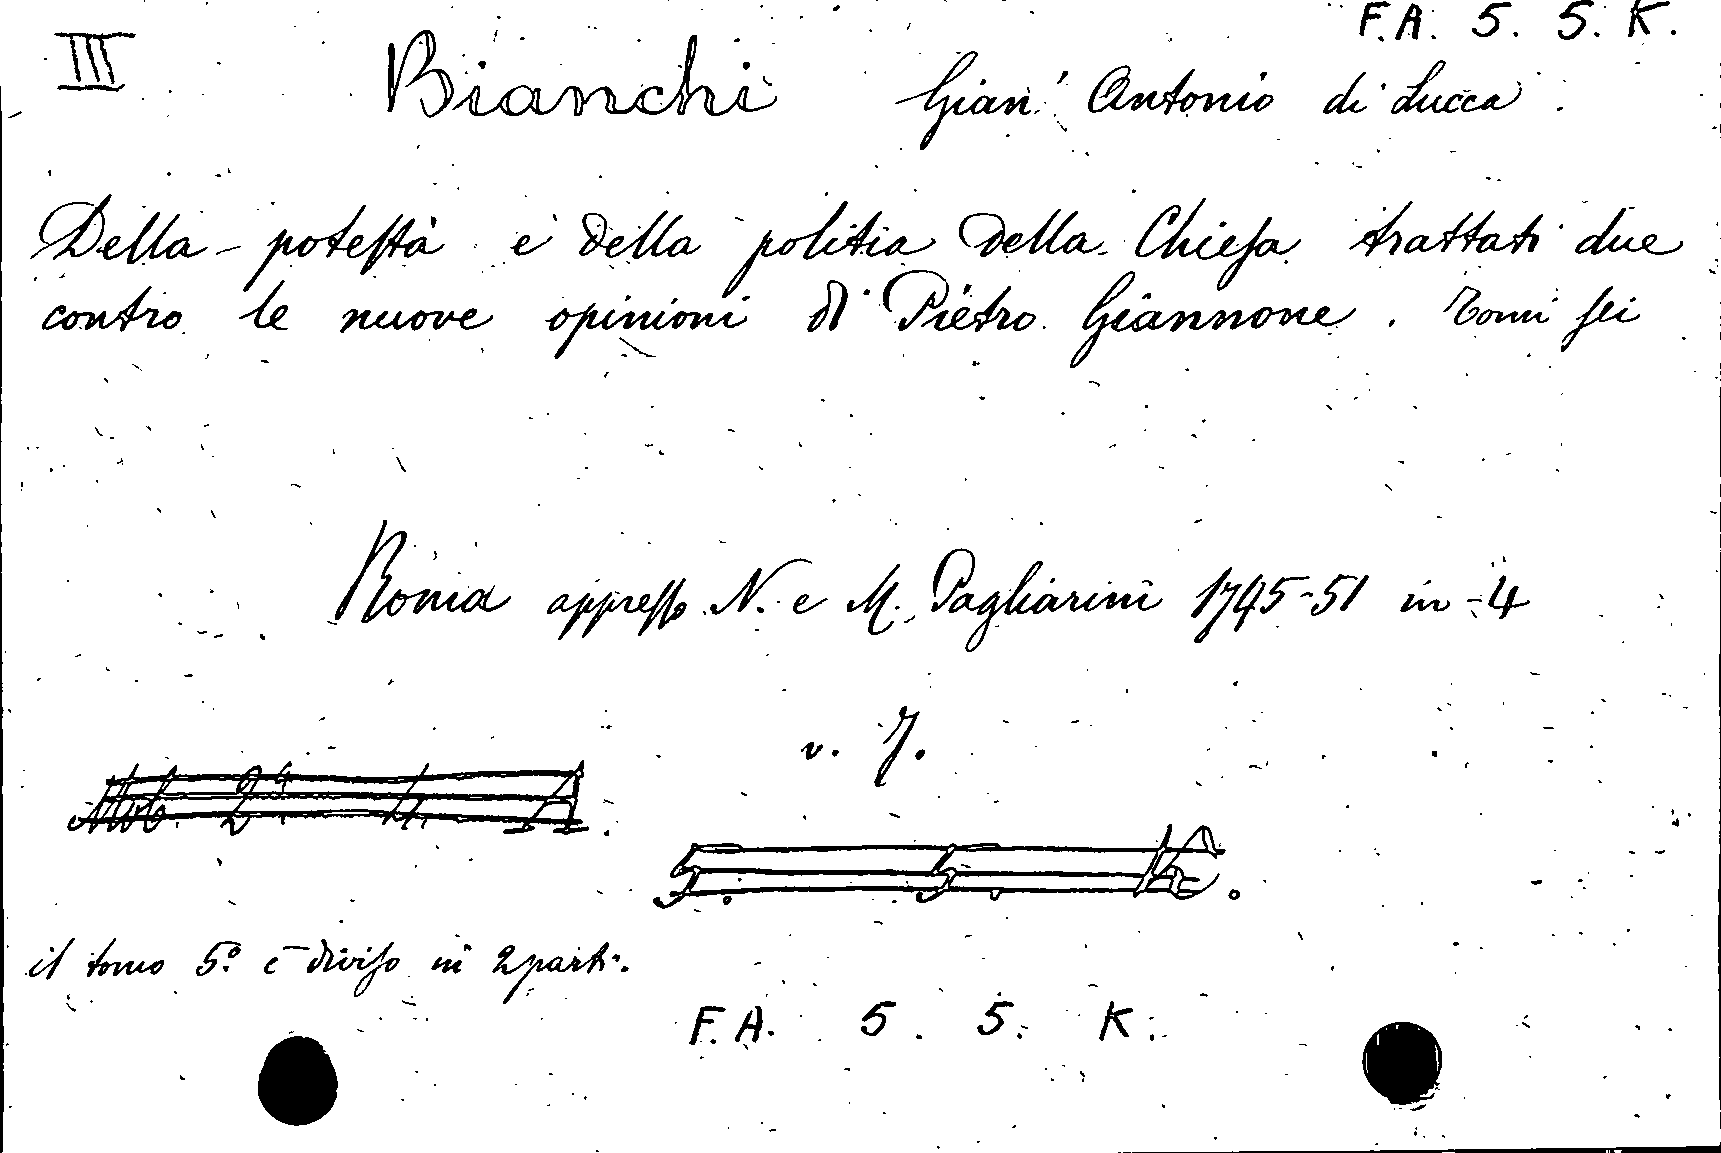 F.A. 5. 5. K.
III Bianchi Gian' Antonio di Lucca.
Della potestà e della politia della Chiesa trattati due
contro le nuove opinioni di Pietro Giannone. Tomi sei
Roma appresso N. e M. Pagliarini 1745-51 in-4
v. 7.
5. 5. K.
il tomo 5.º è diviso in 2 parti.
F.A. 5. 5. K.